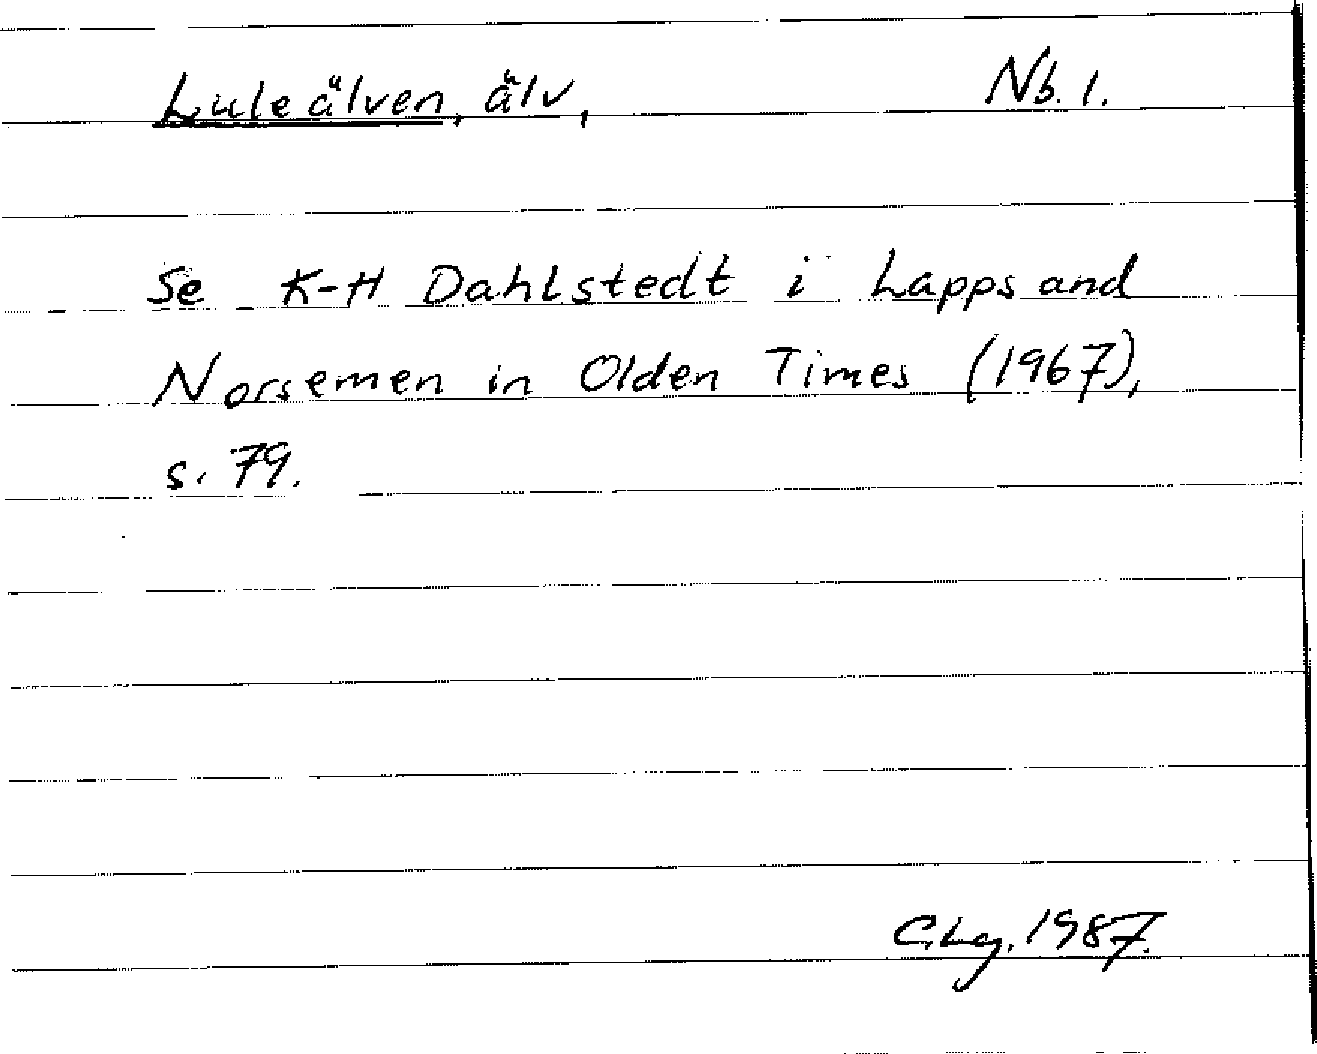 Luleälven, älv, Nb. l.
Se K-H Dahlstedt i Lapps and
Norsemen in Olden Times (1967),
s. 79.
C.Lg. 1987.